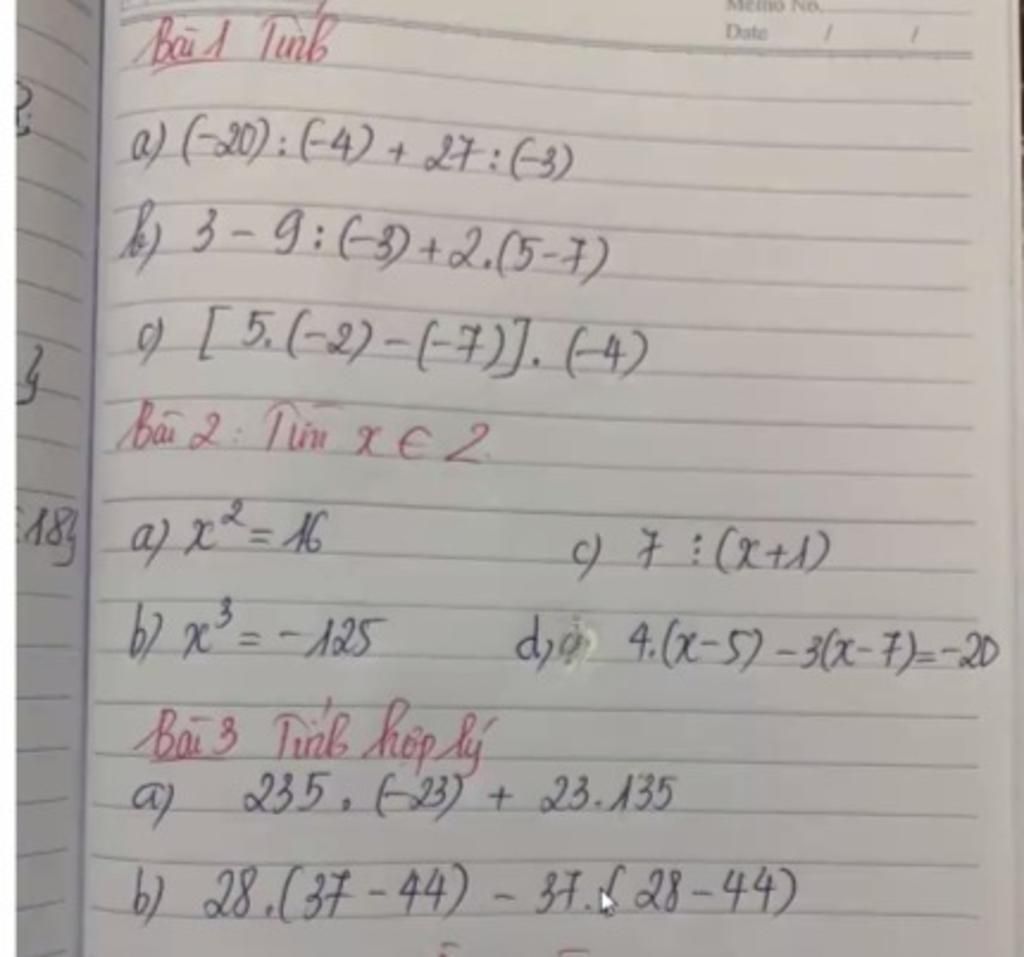 Memo No.
Date / /
Bài 1 Tính
a) (-20) : (-4) + 27 : (-3)
b) 3 - 9 : (-3) + 2.(5-7)
c) [ 5. (-2) - (-7)] . (-4)
Bài 2 : Tìm x ∈ Z
18}
a) x² = 16 c) 7 ⋮ (x+1)
b) x³ = - 125 d, 4.(x-5) - 3(x-7)=-20
Bài 3 Tính hợp lý
a) 235 . (-23) + 23.135
b) 28.(37 - 44) - 37.( 28 - 44)